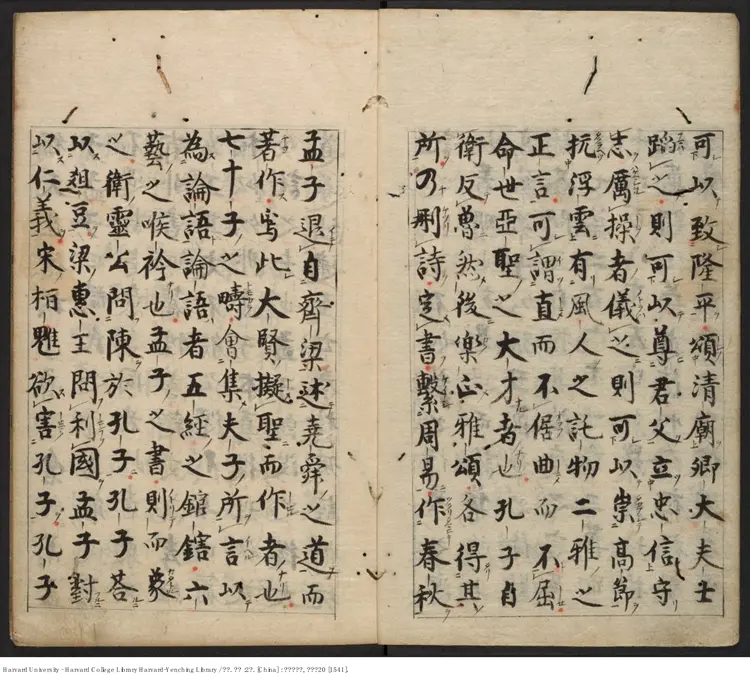 可以致隆平頌清廟卿大夫士
蹈之則可以尊君父立忠信守
志厲操者儀之則可以崇高節
抗浮雲有風人之託物二雅之
正言可謂直而不倨曲而不屈
命世亞聖之大才者也孔子自
衛反魯然後樂正雅頌各得其
所乃刪詩定書繫周易作春秋
孟子退自齊梁述堯舜之道而
著作焉此大賢擬聖而作者也
七十子之疇會集夫子所言以
為論語論語者五經之錧鎋六
藝之喉衿也孟子之書則而象
之衛靈公問陳於孔子孔子荅
以爼豆梁惠王問利國孟子對
以仁義宋桓魋欲害孔子孔子
Harvard University - Harvard College Library Harvard-Yenching Library / ??. ?? :2?. [China] : ?????, ???20 [1541].